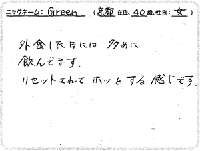 ニックネーム: Green (京都在住、40歳、性別: 女)
外食した日には多めに
飲んでます。
リセットされてホッとする感じです。